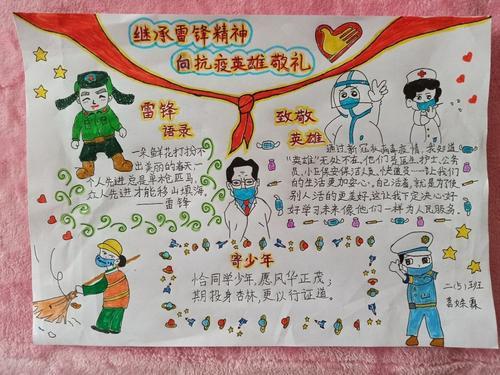 继承雷锋精神
向抗疫英雄敬礼
雷锋
语录
一朵鲜花打扮不
出美丽的春天,
个人先进总是单枪匹马,
众人先进才能移山填海。
——雷锋
致敬
英雄
通过新冠状病毒疫情,我知道
"英雄"无处不在,他们是医生护士,公务
员,小区保安保洁人员,快递员……让我们
的生活更加安心。自己活着,就是为了使
别人活的更美好。这让我下定决心好
好学习未来像他们一样为人民服务。
寄少年
恰同学少年,愿风华正茂;
期投身杏林,更以行证道。
二(5)班